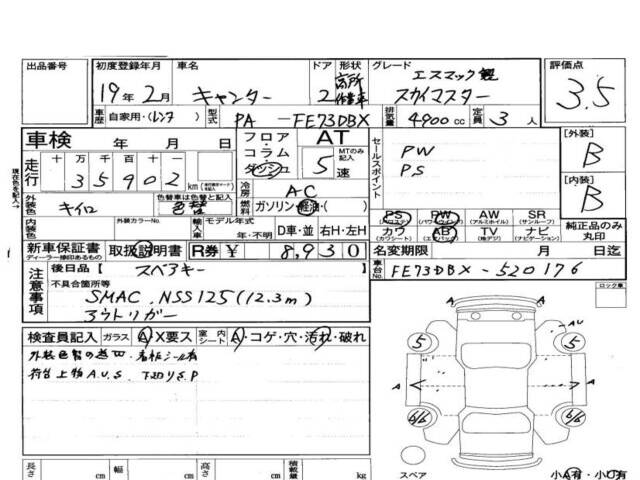 出品番号 初度登録年月 車名 ドア 形状 グレード 評価点
19年 2月 キャンター 2 高所作業車 エスマック製 スカイマスター 3.5
車歴 自家用・(レンタ) 型式 PA - FE73DBX 排気量 4900 cc 定員 3 人
車検 年 月 日 フロア・コラム・ダッシュ AT MTのみ記入 5 速 セールスポイント PW [外装] B
走行 十万千百十一 35902 km PS
冷房 AC [内装] B
外装色 キイロ 色替車は色替と記入 色替 燃料 ガソリン・軽油・( )
PS (パワステ) PW (パワーウインドウ) AW (アルミホイル) SR (サンルーフ) 純正品のみ丸印
内装色 外装カラーNo. モデル年式 年・不明 D車・並 右H・左H カワ (カワシート) AB (エアバッグ) TV (純デジ) ナビ (ナビゲーション)
現在色を記入→
新車保証書 ディーラー捺印あるもの 取扱説明書 R券 ¥ 8,930 名変期限 月 日迄
注意事項 後日品 スペアキー 車台No. FE73DBX - 520176
不具合箇所等 ロック車
SMAC . NSS125 (12.3m)
アウトリガー
検査員記入 ガラス A・X要ス 室内シート A・コゲ・穴・汚れ・破れ
外装色替の為 看板シール有
荷台上物A.U.S. 下廻りS.P
AU
5 5
A A
6/6 6/6
スペア 小A有・小U有
長さ cm 幅 cm 高さ cm 積載量 kg